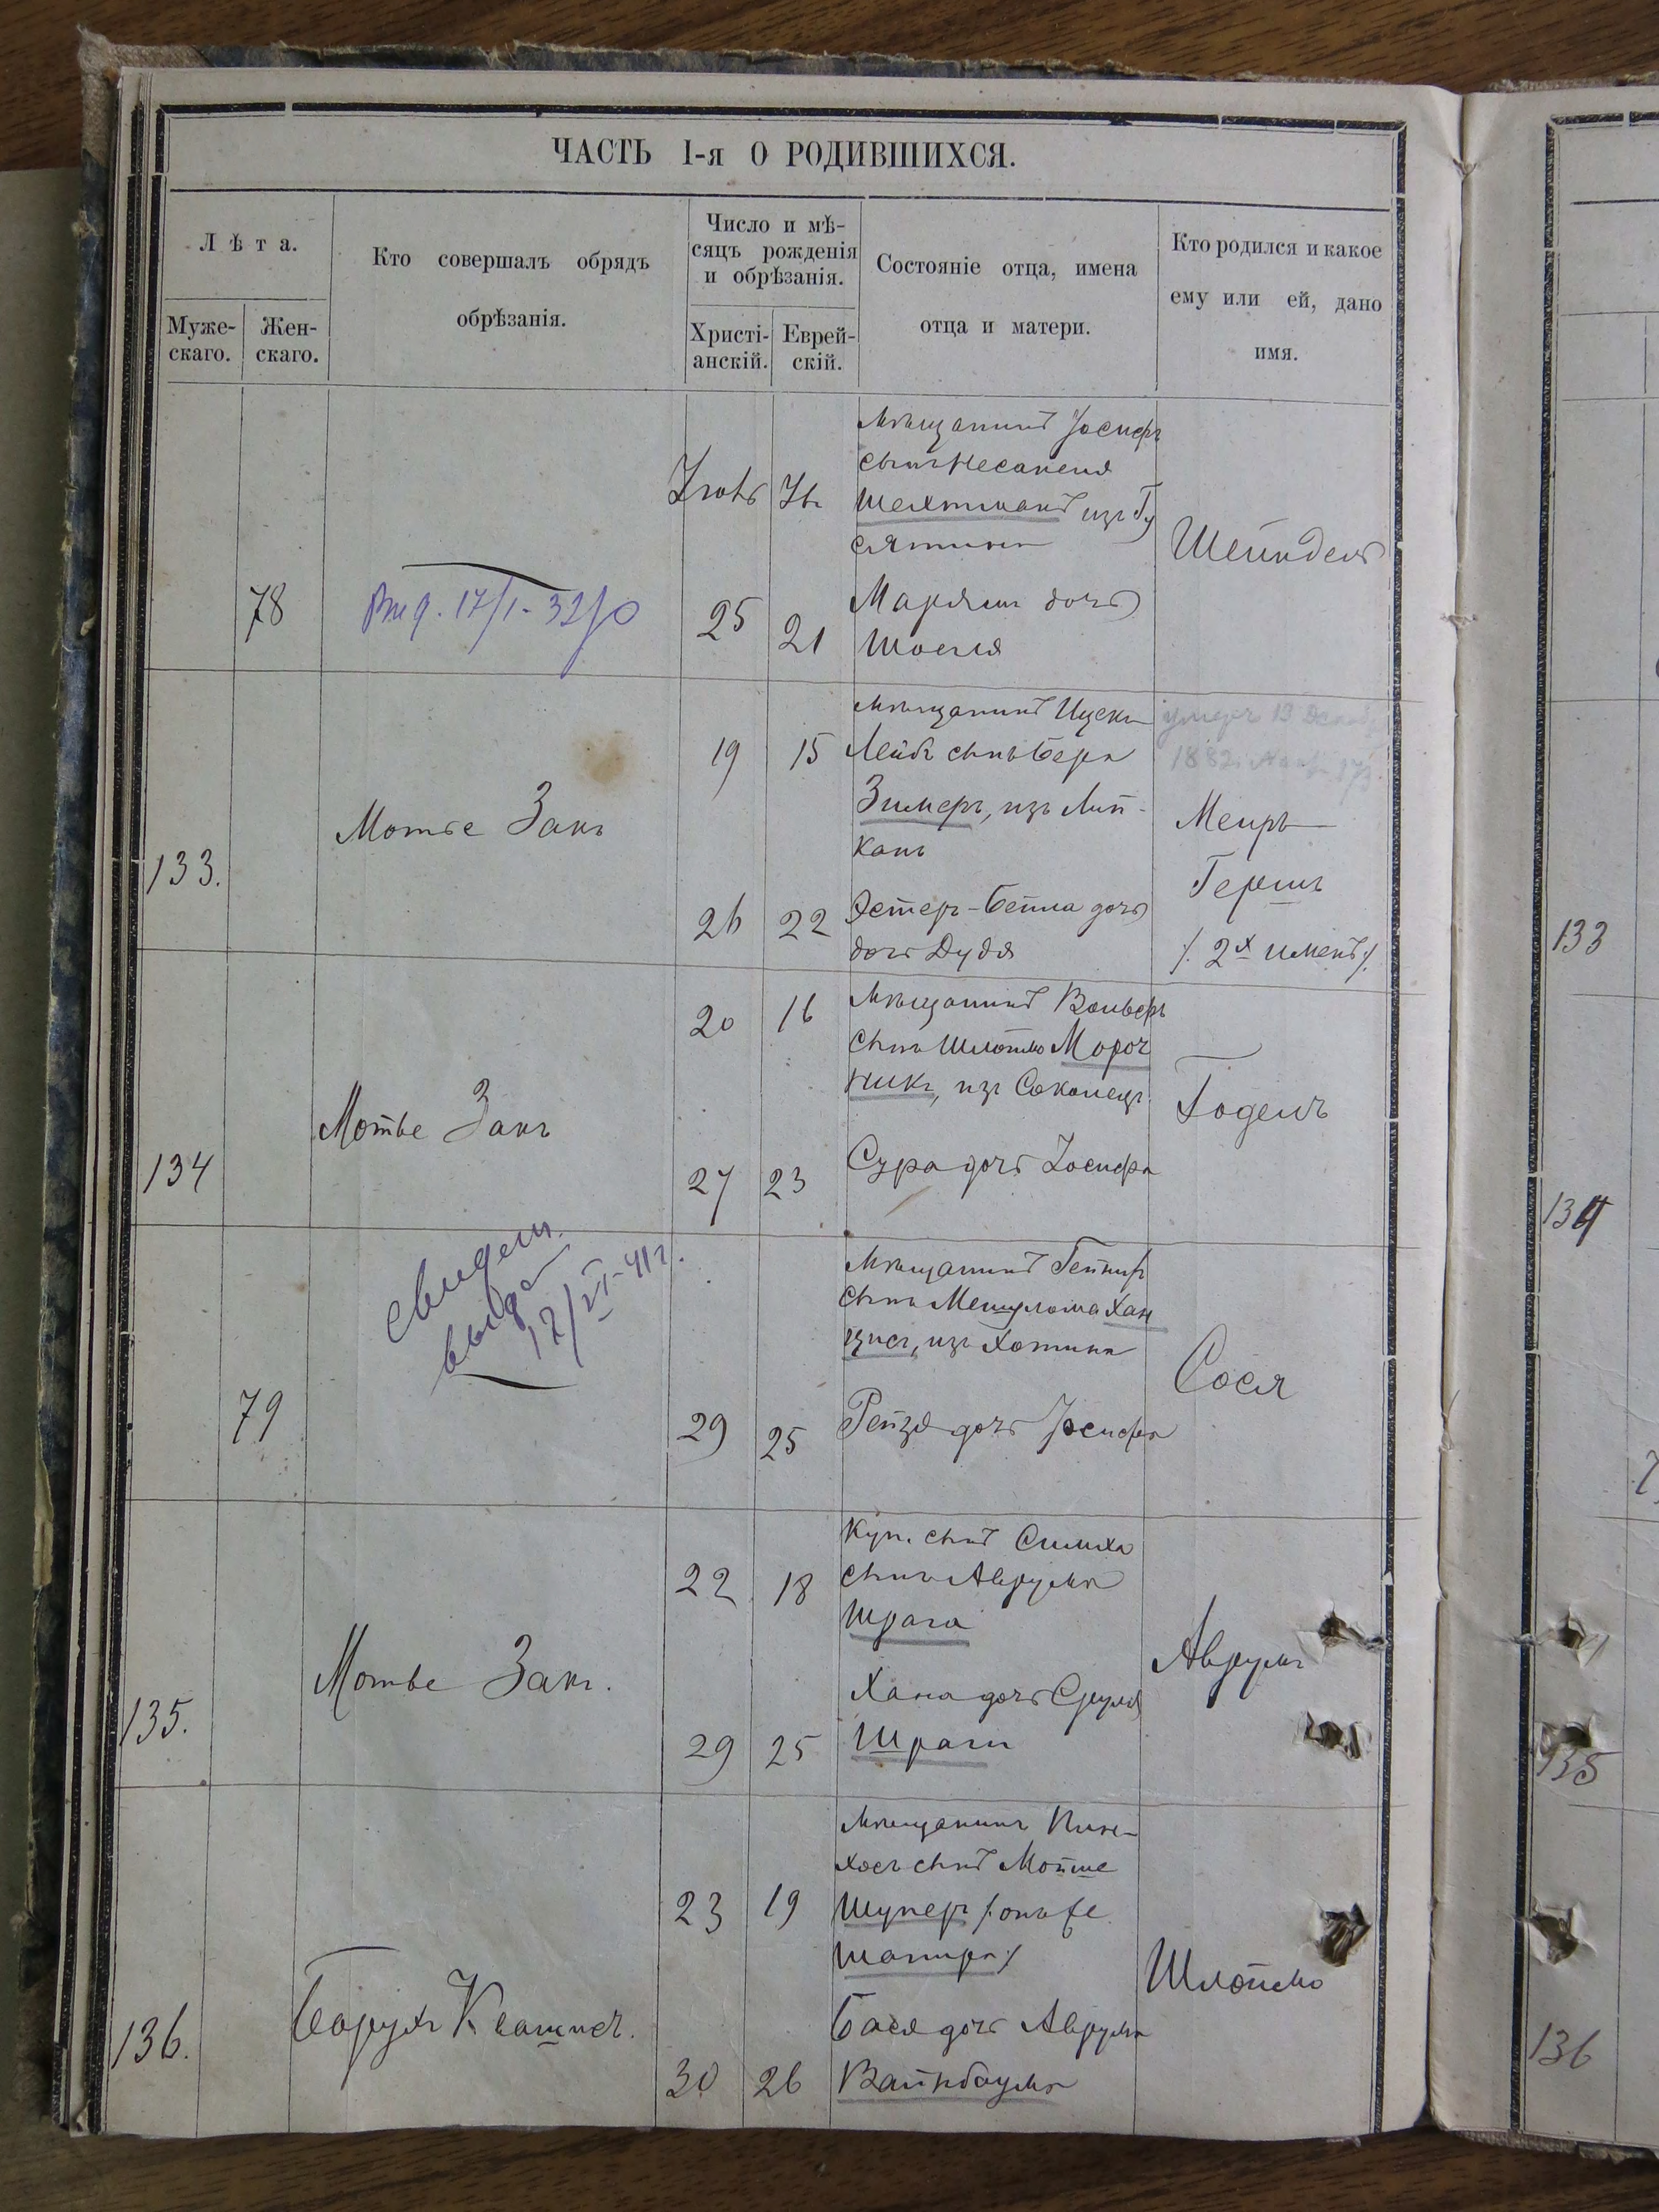 ЧАСТЬ I-я О РОДИВШИХСЯ.
Лѣта.
Муже-
скаго.
Жен-
скаго.
Кто совершалъ обрядъ
обрѣзанія.
Число и мѣ-
сяцъ рожденія
и обрѣзанія.
Христі-
анскій.
Еврей-
скій.
Состояніе отца, имена
отца и матери.
Кто родился и какое
ему или ей, дано
имя.
78
17/I-32
25
21
Мѣщанинъ Іосифъ
сынъ
Шехтманъ изъ Гу
сятина
дочь
Шоеля
Шейндель
133.
Мотье Закъ
19
15
26
22
Мѣщанинъ Ицекъ
Лейбъ сынъ Бера
Зимеръ, изъ Лип-
канъ
Эстеръ-Бейла дочь
дочь Дудя
13
1882
Меиръ
Гершъ
/. 2х именъ /.
134
Мотье Закъ
20
16
27
23
Мѣщанинъ Вольфъ
сынъ Шлоймо Мороч
никъ, изъ Соконецъ
Сура дочь Іосифа
Годель
79
свидет.
выдан
17/VI-41г.
29
25
Мѣщанинъ
сынъ Мешулома Хан
цисъ, изъ Хотина
Рейзя дочь Іосифа
Сося
135.
Мотье Закъ.
22
18
29
25
Куп. сынъ Симха
сынъ Аврума
Шрага
Хана дочь Сруля
Шраги
Аврумъ
136.
Борухъ
23
19
30
26
Мѣщанинъ Пин-
хосъ сынъ Мойше
Шуперъ /: онъ же
Шапира /
Бася дочь Аврума
Вайнбаума
Шлоймо
133
134
135
136